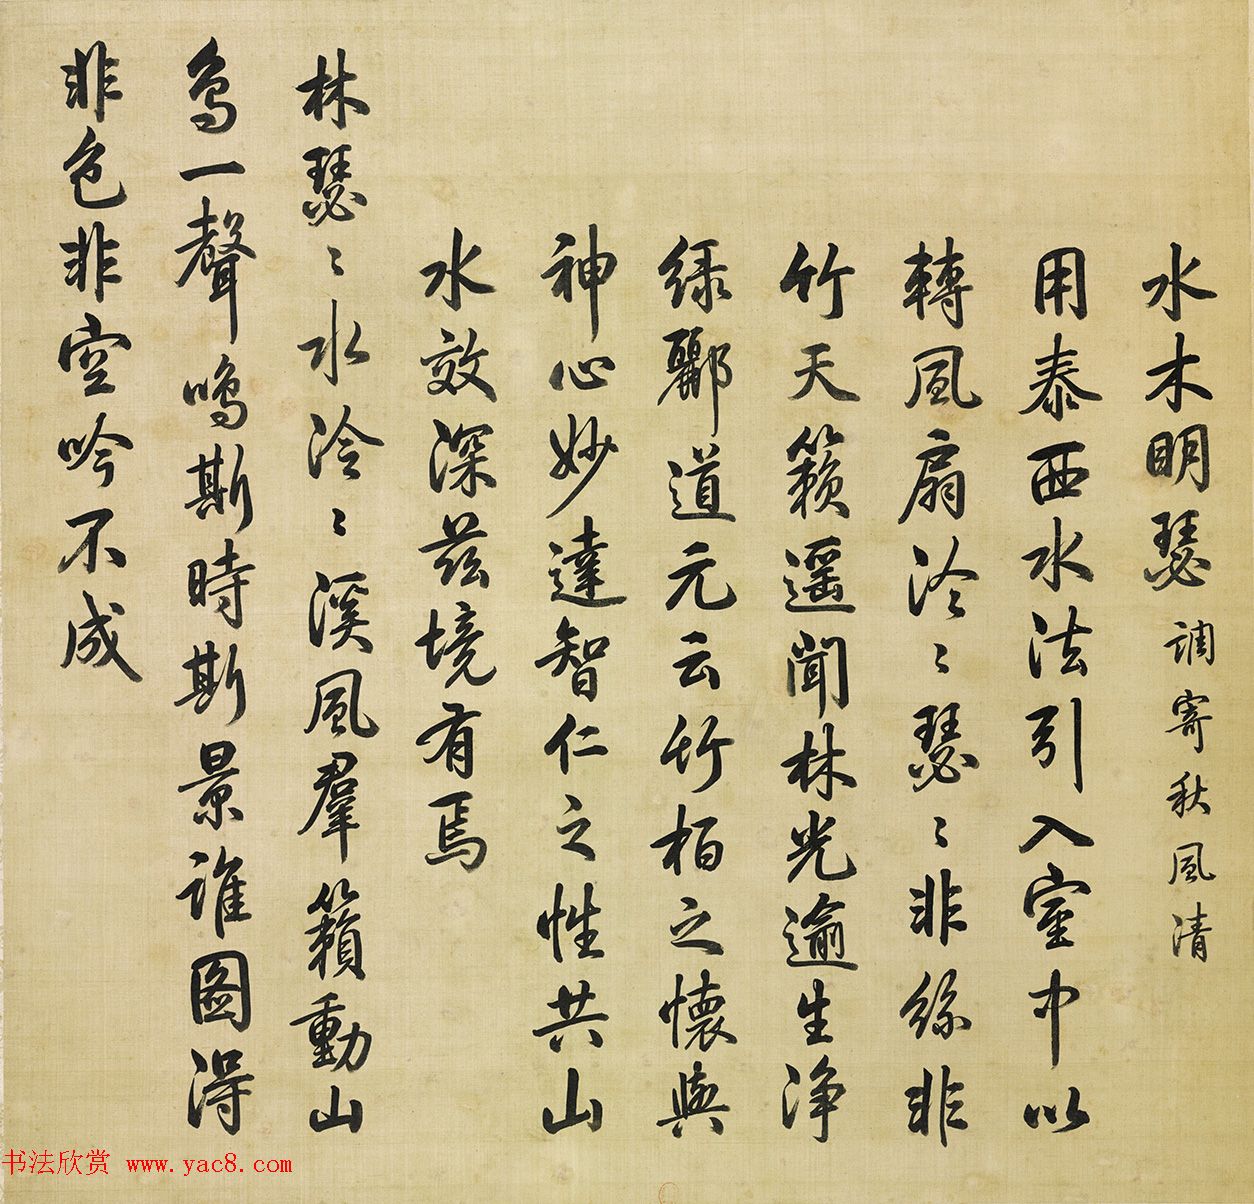 水木明瑟調寄秋風清
用泰西水法引入室中以
轉風扇泠〻瑟〻非絲非
竹天籟遥聞林光逾生淨
綠酈道元云竹栢之懷與
神心妙達智仁之性共山
水效深茲境有焉
林瑟〻水泠〻溪風羣籟動山
鳥一聲鳴斯時斯景誰圖得
非色非空吟不成
书法欣赏 www.yac8.com